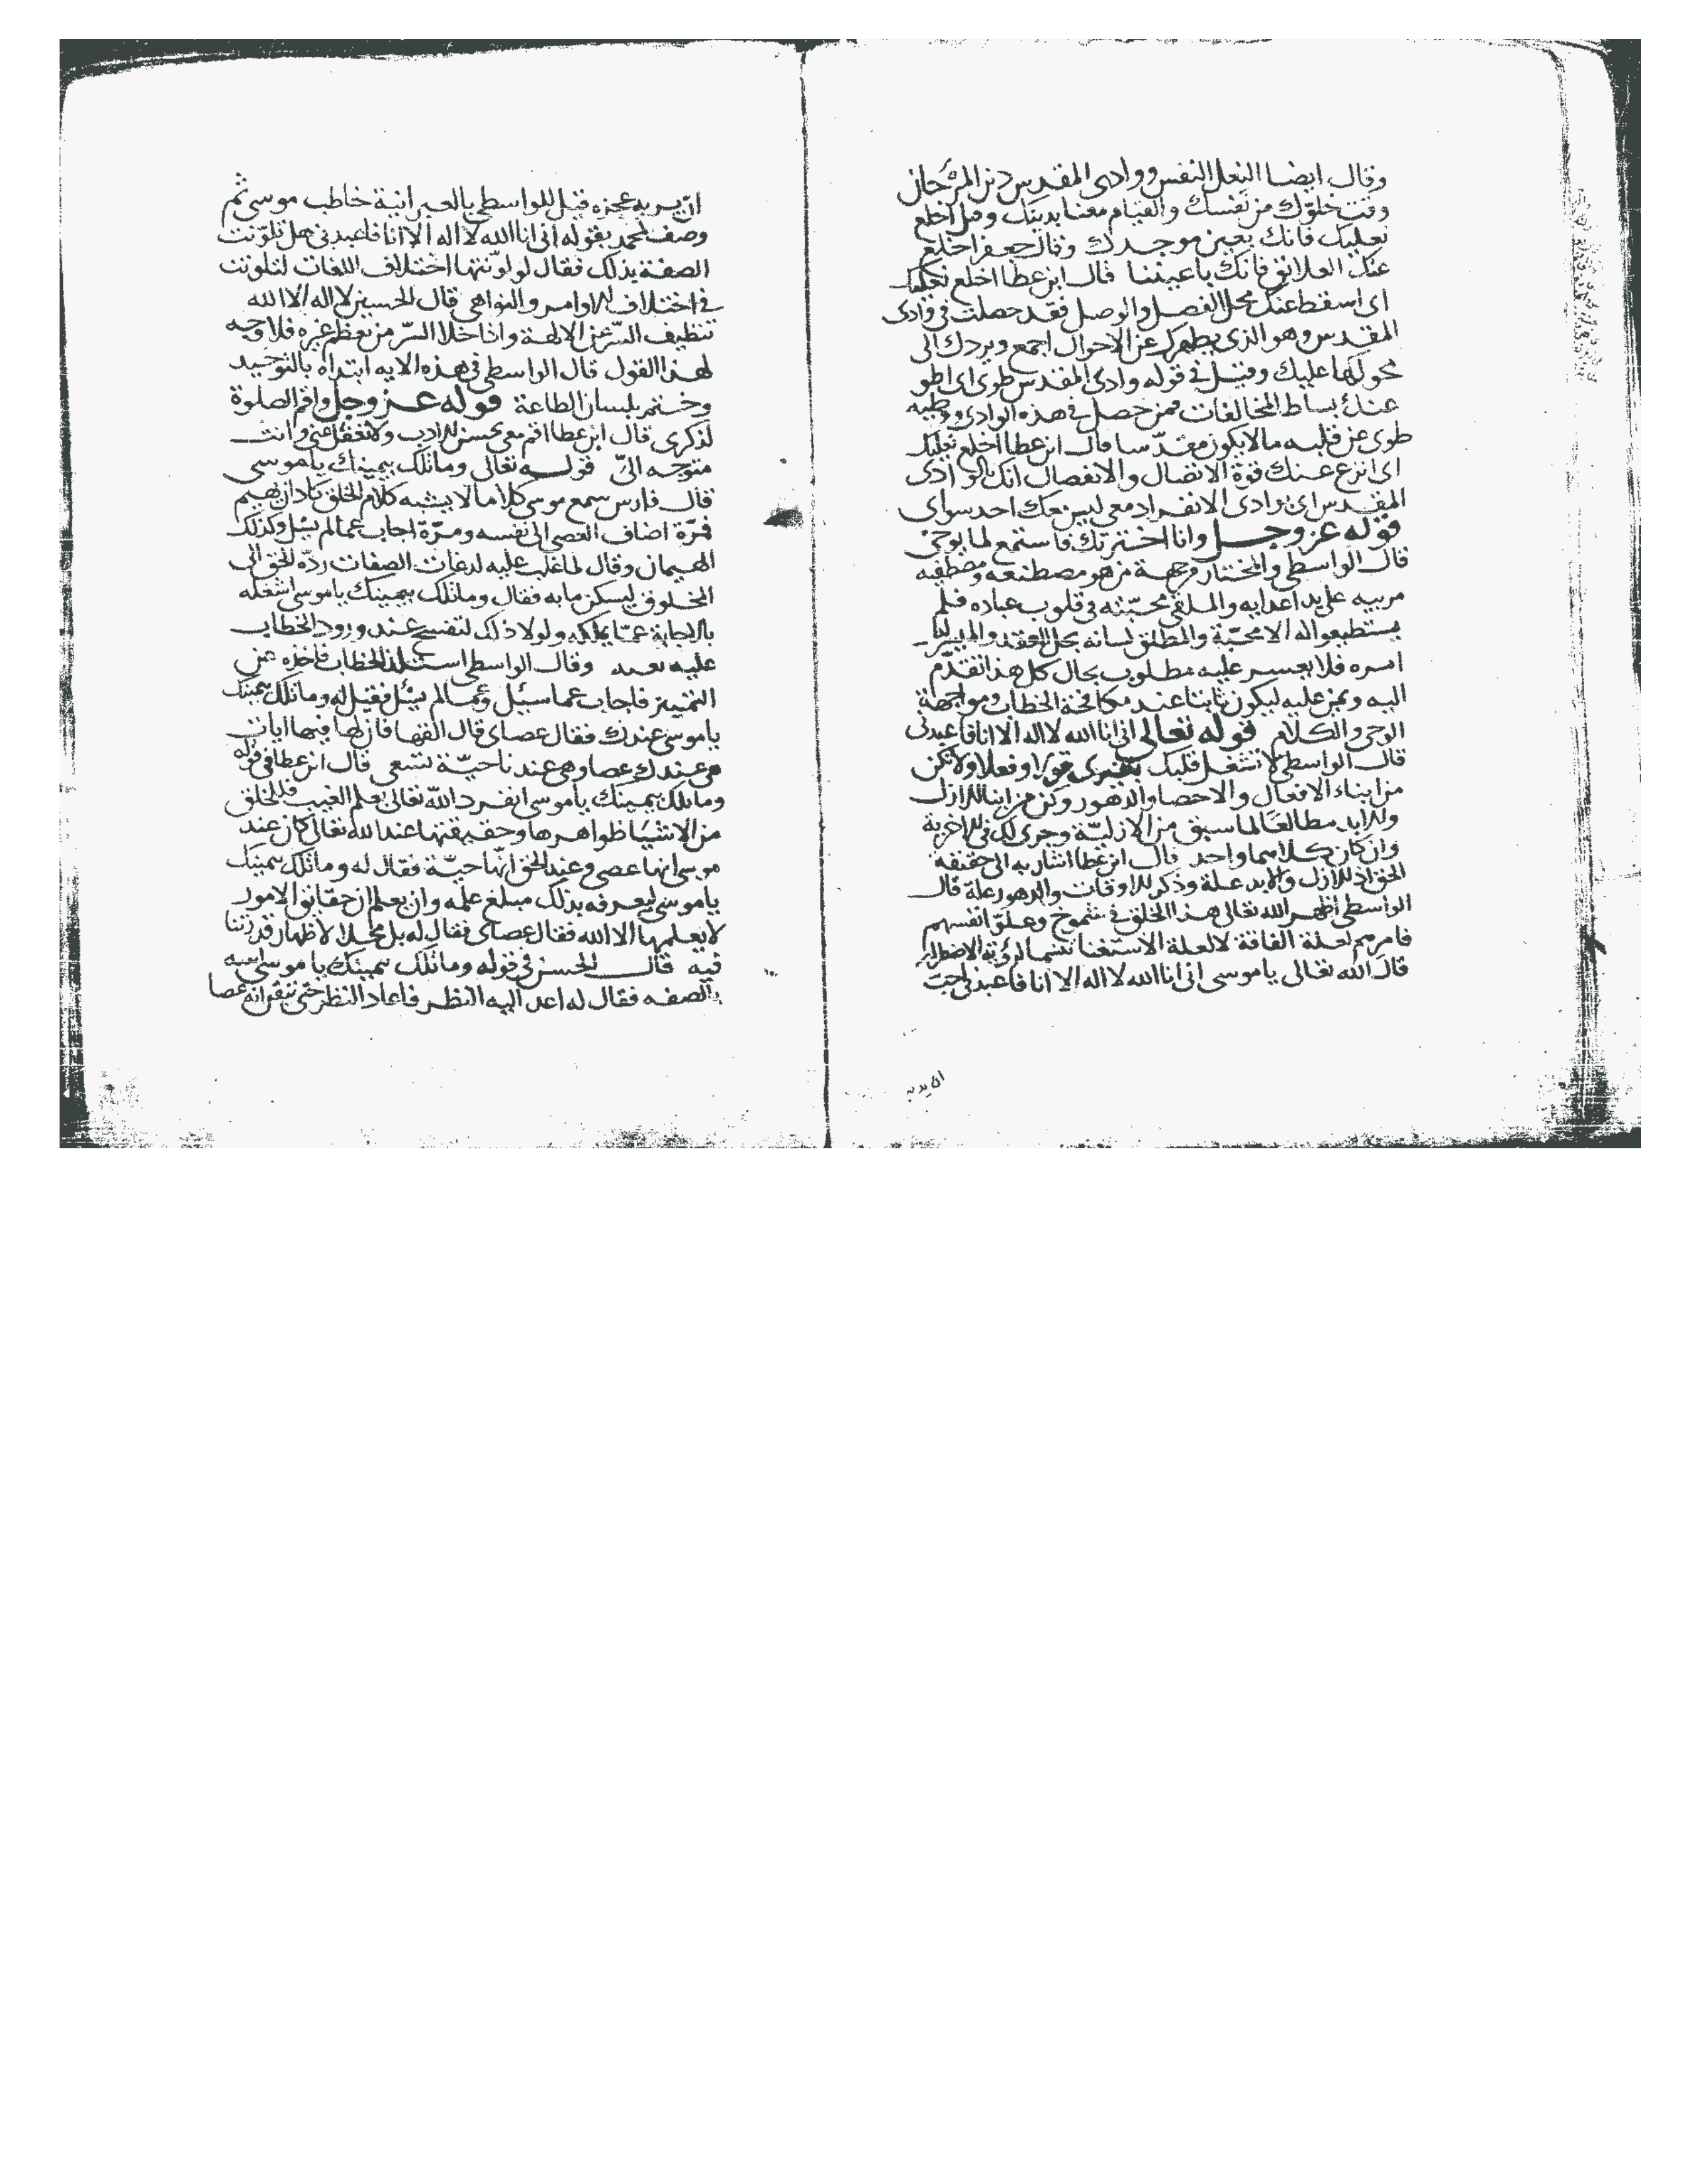 وقال ايضا النعل النفس ووادى المقدس دين المرء حان
وقت خلوّك من نفسك والقيام معنا بدينك وقيل اخلع
نعليك فانك بعين موجدك وقال جعفر اخلع
عنك العلائق فانك باعيننا قال ابن عطا اخلع نعليك
اى اسقط عنك محل الفصل والوصل فقد حصلت فى وادى
المقدس وهو الذى يطهرك عن الاحوال اجمع ويردك الى
محولها عليك وقيل فى قوله وادى المقدس طوى اى اطو
عنك بساط المخالفات فمن حصل فى هذه الوادى ووطيه
طوى عن قلبه مالا يكون مقدّسا قال ابن عطا اخلع نعليك
اى انزع عنك قوة الاتصال والانفصال انك بالوادى
المقدس اى بوادى الانفراد معى ليس معك احد سواى
قوله عز وجل وانا اخترتك فاستمع لما يوحى
قال الواسطى والمختار من جهة من هو مصطنعه ومصطفيه
مربيه على يد اعدايه والملقى محبّته فى قلوب عباده فلم
يستطيعوا له الا محبّة والمطلق لسانه بحل العقد والميسر له
امره فلا يعسر عليه مطلوب بحال كل هذا تقدّم
اليه ويمنّ عليه ليكون ثابتا عند مكافحة الخطاب ومواجهة
الوحى والكلام قوله تعالى انى انا الله لا اله الا انا فاعبدنى
قال الواسطى لا تشغل قلبك بغيرى قولا وفعلا ولا تكن
من ابناء الافعال والاحصا والدهور وكن من ابنا الازل
والابد مطالعًا لما سبق من الازليّة وجرى لك فى الاخرية
وان كان كلاهما واحد قال ابن عطا اشار به الى حقيقة
الحق اذ الازل والابد علة وذكر الاوقات والدهور علة قال
الواسطى اظهر الله تعالى هذا الخلق فى شموخ وعلوّ انفسهم
فامرهم لعلة الفاقة لا لعلة الاستغنا لرؤية الاضطرار
قال الله تعالى ياموسى انى انا الله لا اله الا انا فاعبدنى احبّ
ان يريه
ان يريه عجزه قيل للواسطى بالعبرانية خاطب موسى ثم
وصف لمحمد بقوله انى انا الله لا اله الا انا فاعبدنى هل تلوّنت
الصفة بذلك فقال لو لوّنتها اختلاف اللغات لتلونت
فى اختلاف الاوامر والنواهى قال الحسين لا اله الا الله
تنظيف السّر عن الالهة واذا خلا السّر من تعظيم غيره فلا وجه
لهذا القول قال الواسطى فى هذه الايه ابتداه بالتوحيد
وختمه بلسان الطاعة قوله عز وجل واقم الصلوة
لذكرى قال ابن عطا اقم معى بحسن الادب ولا تغفل عنى وانت
متوجه الىّ قوله تعالى وما تلك بيمينك ياموسى
قال فارس سمع موسى كلاما لا يشبه كلام الخلق كاد ان يهيم
فمرّة اضاف العصى الى نفسه ومرّة اجاب عمّا لم يسئل وكذلك
الهيمان وقال لما غلب عليه الصفات ردّه الحق الى
المخلوق ليسكن ما به فقال وما تلك بيمينك ياموسى اشغله
بالاجابة عمّا يملكه ولولا ذلك لتفسخ عند ورود الخطاب
عليه وقال الواسطى استلذ الخطاب فاخذه عن
التمييز فاجاب عما سيل وعمّا لم يسئل فقيل له وما تلك بيمينك
ياموسى عندك فقال عصاى قال القها فان لها فيها ايات
هى عندك عصا وهى عندنا حيّة تسعى قال ابن عطا فى قوله
وما تلك بيمينك ياموسى انفرد الله تعالى بعلم الغيب فللخلق
من الاشيا ظواهرها وحقيقتها عند الله تعالى كان عند
موسى انها عصى وعند الحق انّها حيّة فقال له وما تلك بيمينك
ياموسى ليعرفه بذلك مبلغ علمه وان يعلم ان حقائق الامور
لا يعلمها الا الله فقال عصاى فقال له بل محلا لاظهار قدرتنا
فيه قال الحسين فى قوله وما تلك بيمينك ياموسى
بالصفه فقال له اعد اليه النظر فاعاد النظر حتى تيقن انه عصا